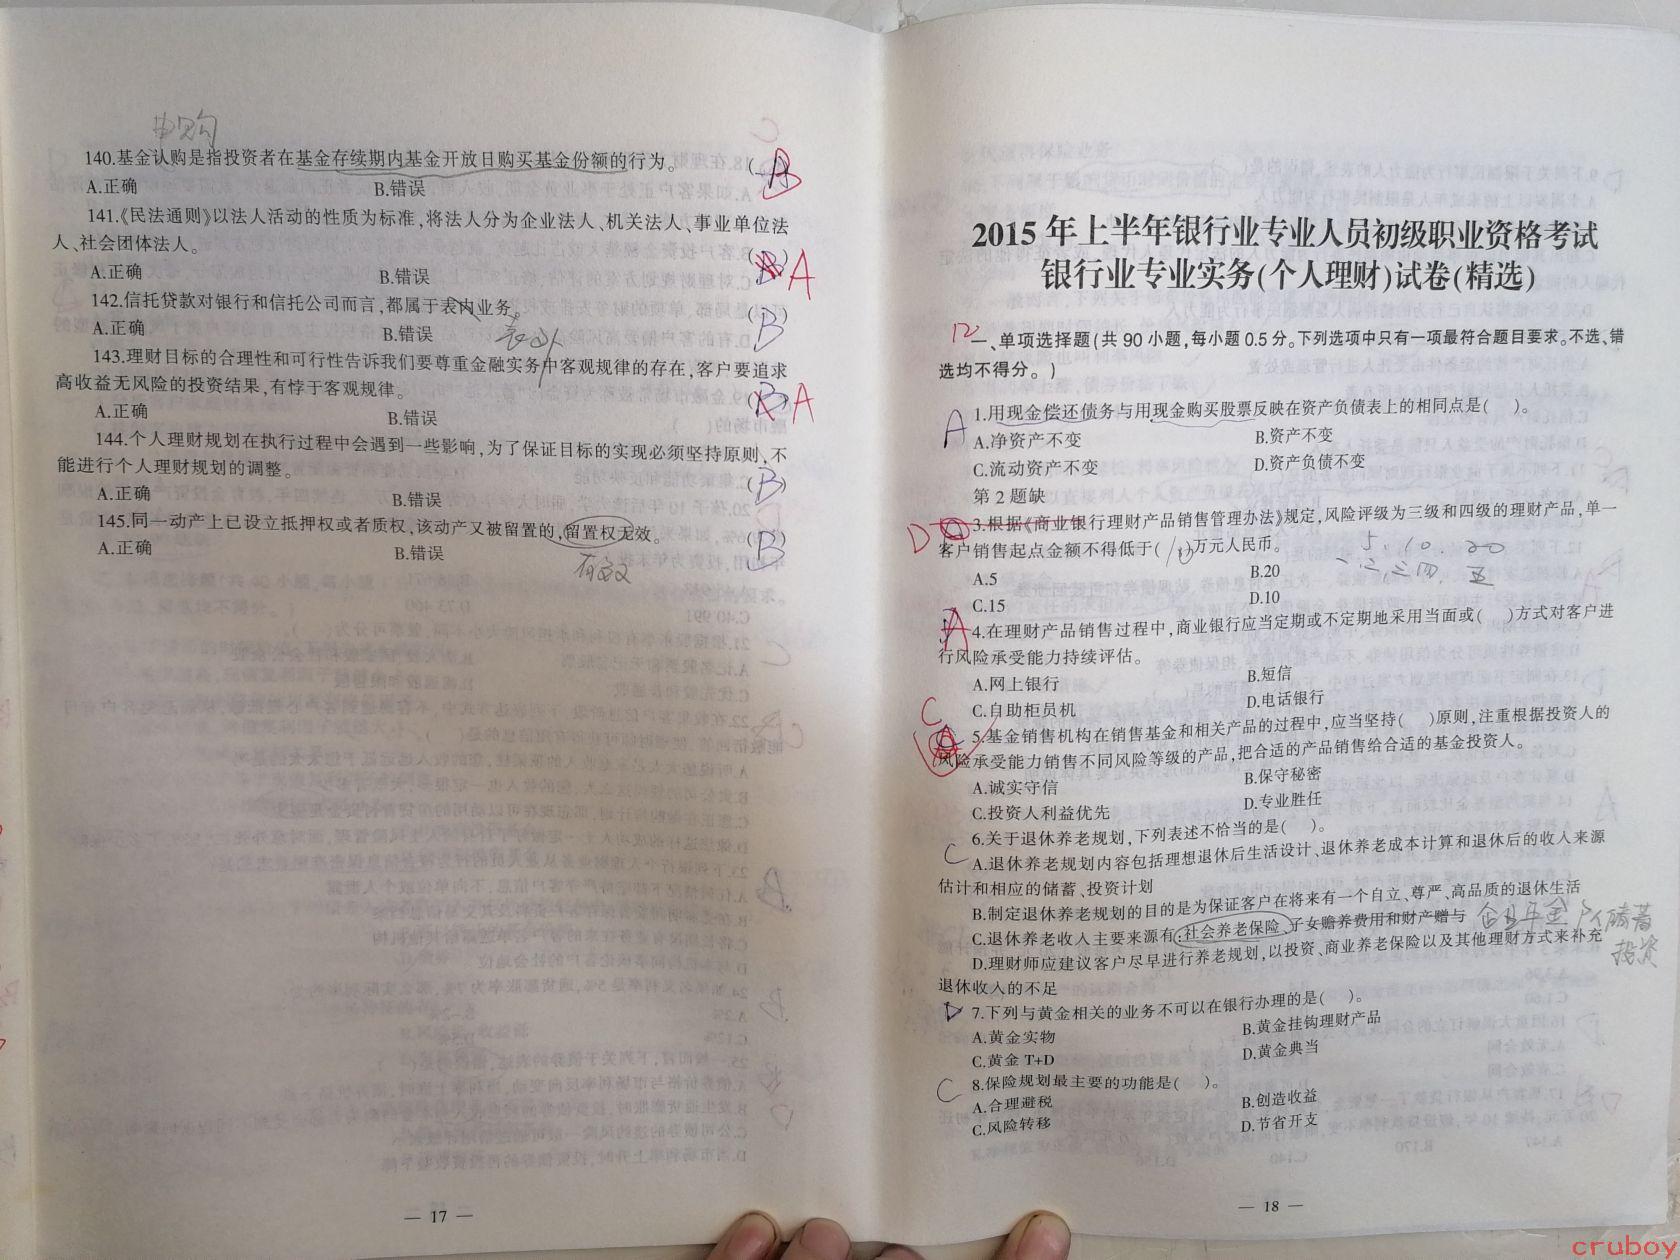 申购
140.基金认购是指投资者在基金存续期内基金开放日购买基金份额的行为。 ( B )
A.正确 B.错误
141.《民法通则》以法人活动的性质为标准,将法人分为企业法人、机关法人、事业单位法
人、社会团体法人。 ( B ) A
A.正确 B.错误
142.信托贷款对银行和信托公司而言,都属于表内业务。 ( B )
表外
A.正确 B.错误
143.理财目标的合理性和可行性告诉我们要尊重金融实务中客观规律的存在,客户要追求
高收益无风险的投资结果,有悖于客观规律。 ( B ) A
A.正确 B.错误
144.个人理财规划在执行过程中会遇到一些影响,为了保证目标的实现必须坚持原则,不
能进行个人理财规划的调整。 ( B )
A.正确 B.错误
145.同一动产上已设立抵押权或者质权,该动产又被留置的,留置权无效。 ( B )
有效
A.正确 B.错误
— 17 —
2015 年上半年银行业专业人员初级职业资格考试
银行业专业实务(个人理财)试卷(精选)
12
一、单项选择题(共 90 小题,每小题 0.5 分。下列选项中只有一项最符合题目要求。不选、错
选均不得分。)
A 1.用现金偿还债务与用现金购买股票反映在资产负债表上的相同点是( )。
A.净资产不变 B.资产不变
C.流动资产不变 D.资产负债不变
第 2 题缺
D 3.根据《商业银行理财产品销售管理办法》规定,风险评级为三级和四级的理财产品,单一
客户销售起点金额不得低于( 10 )万元人民币。 5. 10. 20
一二,三四, 五
A.5 B.20
C.15 D.10
A 4.在理财产品销售过程中,商业银行应当定期或不定期地采用当面或( )方式对客户进
行风险承受能力持续评估。
A.网上银行 B.短信
C.自助柜员机 D.电话银行
C 5.基金销售机构在销售基金和相关产品的过程中,应当坚持( )原则,注重根据投资人的
风险承受能力销售不同风险等级的产品,把合适的产品销售给合适的基金投资人。
A.诚实守信 B.保守秘密
C.投资人利益优先 D.专业胜任
C 6.关于退休养老规划,下列表述不恰当的是( )。
A.退休养老规划内容包括理想退休后生活设计、退休养老成本计算和退休后的收入来源
估计和相应的储蓄、投资计划
B.制定退休养老规划的目的是为保证客户在将来有一个自立、尊严、高品质的退休生活
C.退休养老收入主要来源有:社会养老保险、子女赡养费用和财产赠与 企业年金 储蓄
投资
D.理财师应建议客户尽早进行养老规划,以投资、商业养老保险以及其他理财方式来补充
退休收入的不足
D 7.下列与黄金相关的业务不可以在银行办理的是( )。
A.黄金实物 B.黄金挂钩理财产品
C.黄金 T+D D.黄金典当
C 8.保险规划最主要的功能是( )。
A.合理避税 B.创造收益
C.风险转移 D.节省开支
— 18 —
cruboy